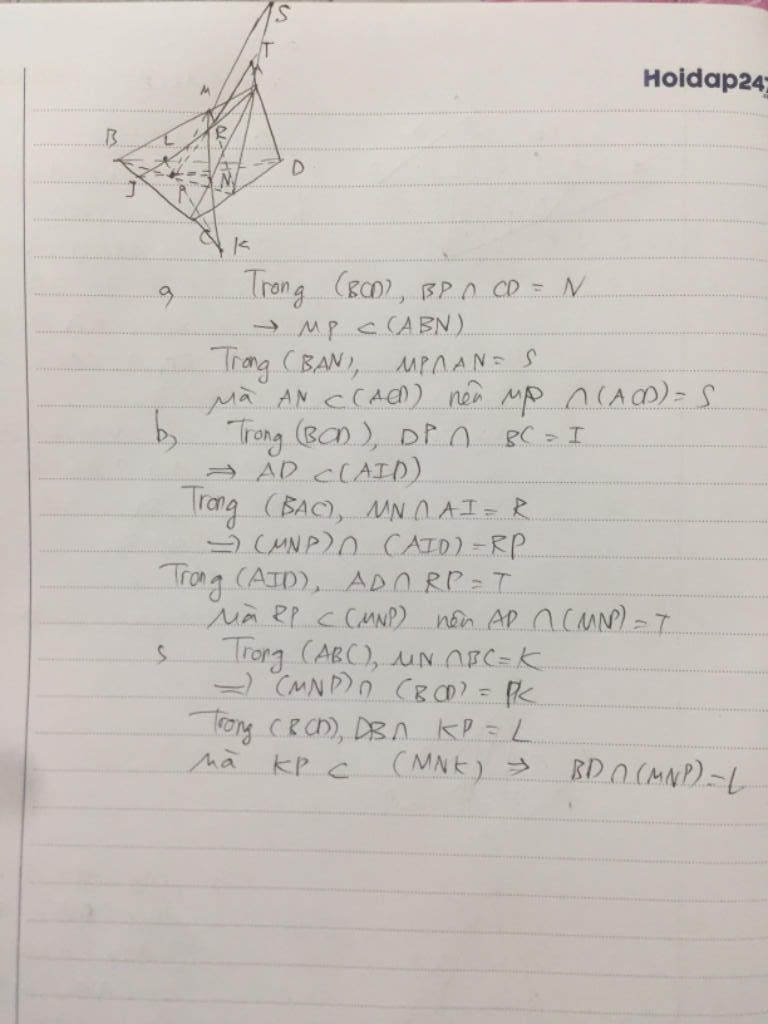 S
T
M
Hoidap247
B
L
R
D
J
P
N
C
K
a, Trong (BCD), BP ∩ CD = N
→ MP ⊂ (ABN)
Trong (BAN), MP ∩ AN = S
Mà AN ⊂ (ACD) nên MP ∩ (ACD) = S
b, Trong (BCD), DP ∩ BC = I
⇒ AD ⊂ (AID)
Trong (BAC), MN ∩ AI = R
⇒ (MNP) ∩ (AID) = RP
Trong (AID), AD ∩ RP = T
Mà RP ⊂ (MNP) nên AD ∩ (MNP) = T
Trong (ABC), MN ∩ BC = K
⇒ (MNP) ∩ (BCD) = PK
Trong (BCD), DB ∩ KP = L
Mà KP ⊂ (MNK) ⇒ BD ∩ (MNP) = L